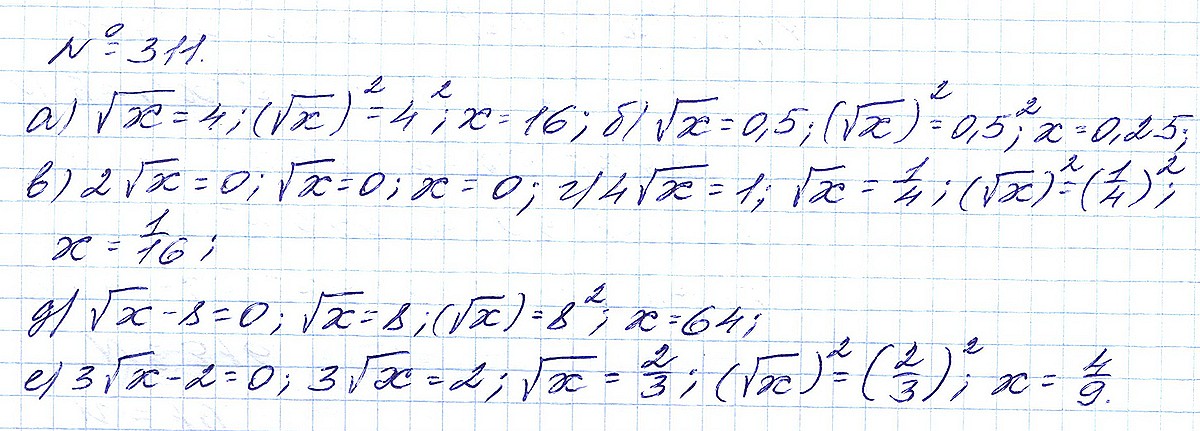 № 311.
а) √x = 4; (√x)² = 4²; x = 16; б) √x = 0,5; (√x)² = 0,5²; x = 0,25;
в) 2√x = 0; √x = 0; x = 0; г) 4√x = 1; √x = 1/4; (√x)² = (1/4)²;
x = 1/16;
д) √x - 8 = 0; √x = 8; (√x) = 8²; x = 64;
е) 3√x - 2 = 0; 3√x = 2; √x = 2/3; (√x)² = (2/3)²; x = 4/9.